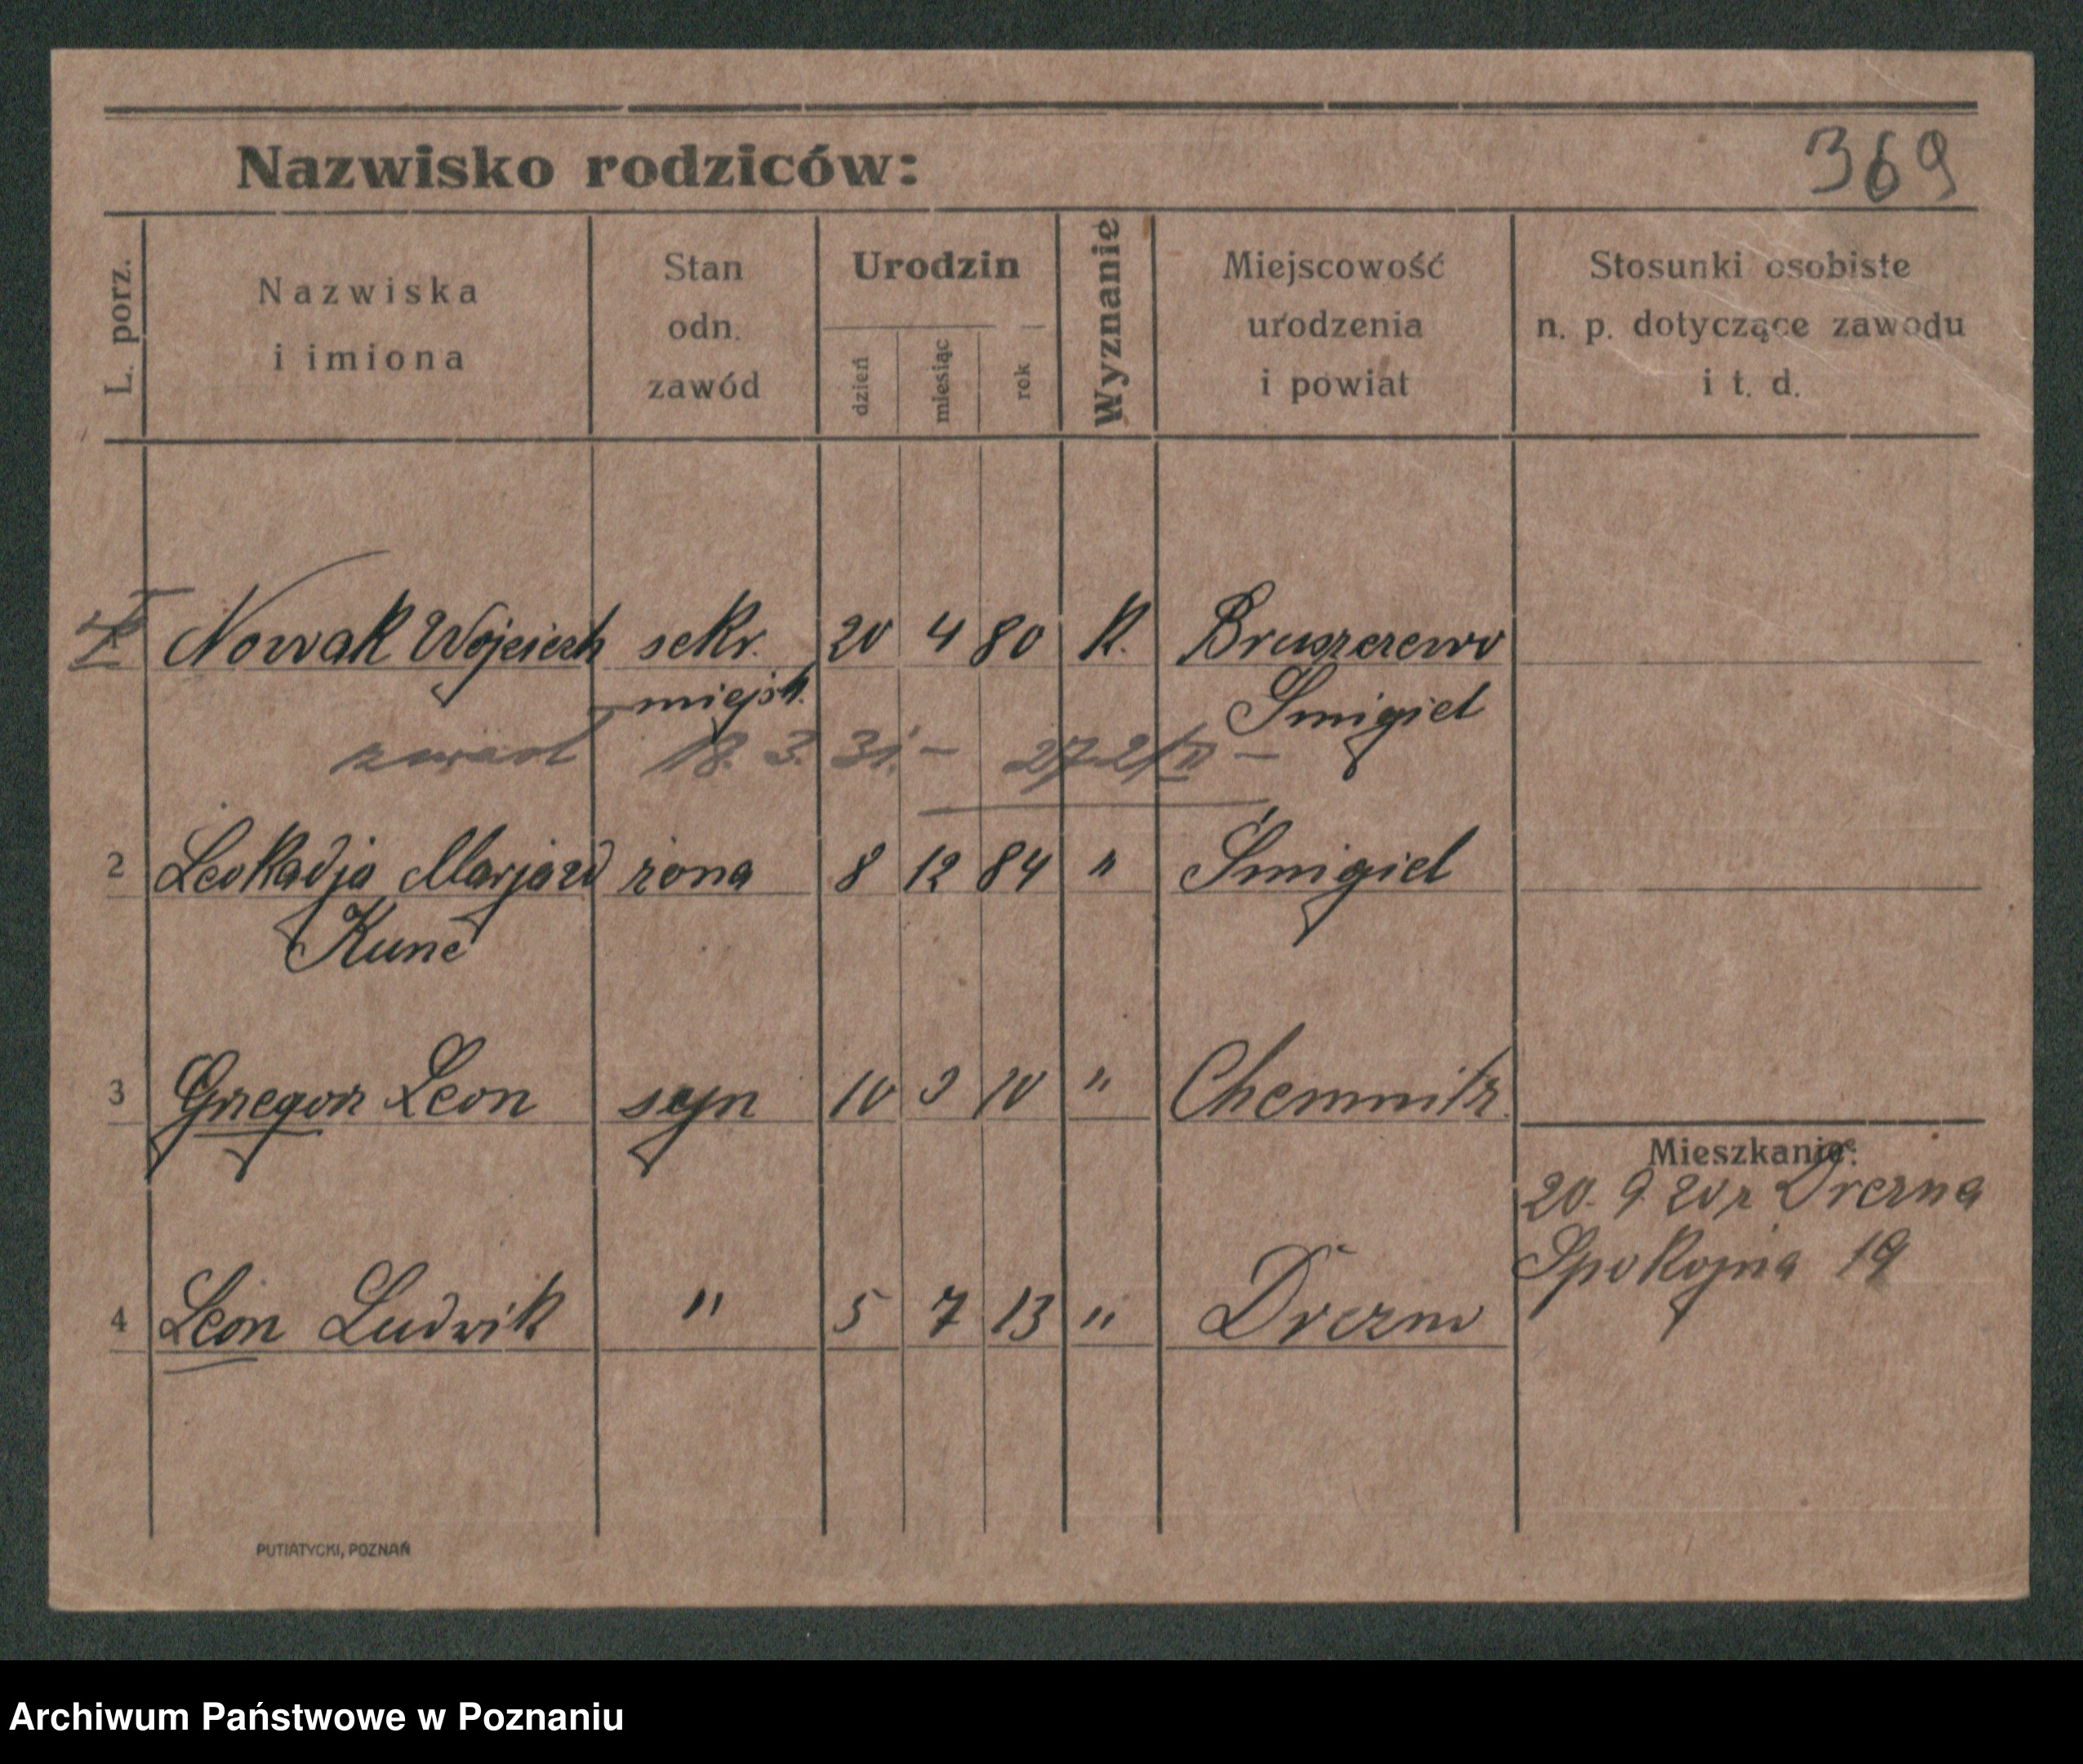 Nazwisko rodziców:
369
L. porz.
Nazwiska
i imiona
Stan
odn.
zawód
Urodzin
dzień
miesiąc
rok
Wyznanie
Miejscowość
urodzenia
i powiat
Stosunki osobiste
n. p. dotyczące zawodu
i t. d.
Nowak Wojciech sekr. 20 4 80 K. Bruszczewo
miejsk. Smigiel
18. 3. 31. –
2 Leokadja Marja zd żona 8 12 84 " Śmigiel
Kunc
3 Gregor Leon syn 10 9 10 " Chemnitz
Mieszkanie:
20. 9 20 r Drezna
Spokojna 19
4 Leon Ludwik " 5 7 13 " Drezno
PUTIATYCKI, POZNAŃ
Archiwum Państwowe w Poznaniu